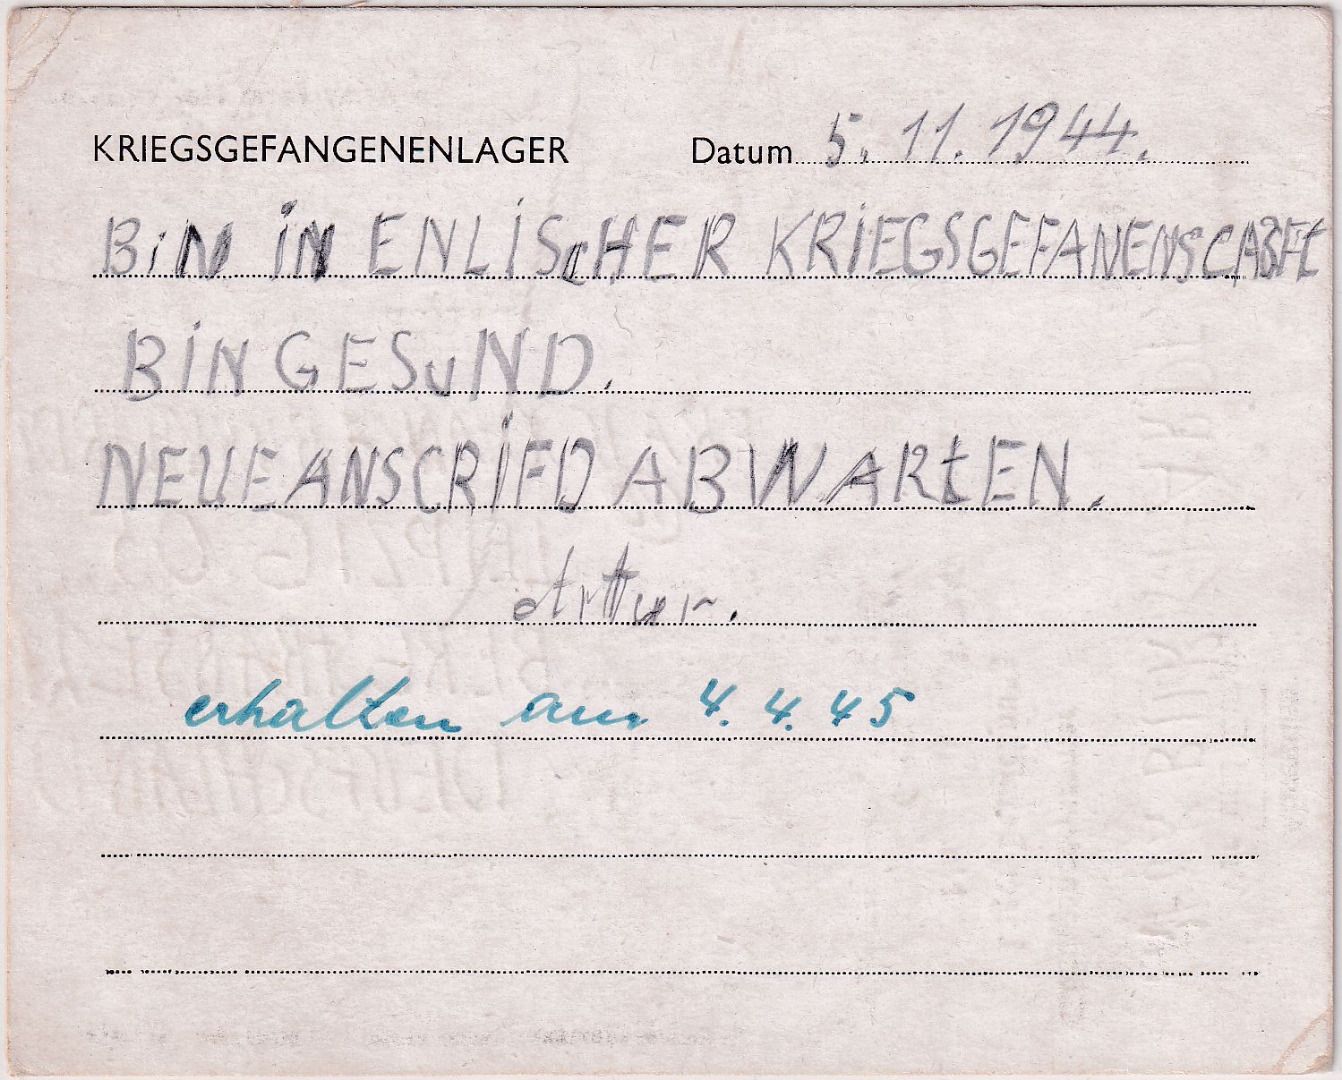 KRIEGSGEFANGENENLAGER Datum 5. 11. 1944.
BiN iN ENLiScHER KRiEGSGEFANENSCABFt
BiN GESuND.
NEUE ANSCRiFD ABWARtEN.
Arttur.
erhalten am 4. 4. 45